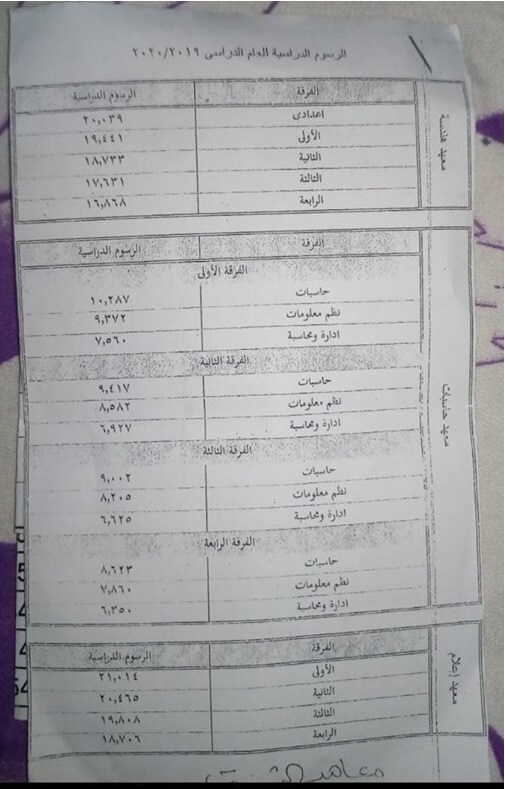 الرسوم الدراسية للعام الدراسى ٢٠٢٠/٢٠١٩
معهد هندسة
الفرقة الرسوم الدراسية
اعدادى ٢٠,٠٣٩
الأولى ١٩,٤٤١
الثانية ١٨,٧٣٣
الثالثة ١٧,٦٣١
الرابعة ١٦,٨٦٨
معهد حاسبات
الفرقة الرسوم الدراسية
الفرقة الأولى
حاسبات ١٠,٢٨٧
نظم معلومات ٩,٣٧٢
ادارة ومحاسبة ٧,٥٦٠
الفرقة الثانية
حاسبات ٩,٤١٧
نظم معلومات ٨,٥٨٢
ادارة ومحاسبة ٦,٩٢٧
الفرقة الثالثة
حاسبات ٩,٠٠٢
نظم معلومات ٨,٢٠٥
ادارة ومحاسبة ٦,٦٢٥
الفرقة الرابعة
حاسبات ٨,٦٢٣
نظم معلومات ٧,٨٦٠
ادارة ومحاسبة ٦,٣٥٠
معهد إعلام
الفرقة الرسوم الدراسية
الأولى ٢١,٠١٤
الثانية ٢٠,٤٦٥
الثالثة ١٩,٨٠٨
الرابعة ١٨,٧٠٦
معاهد